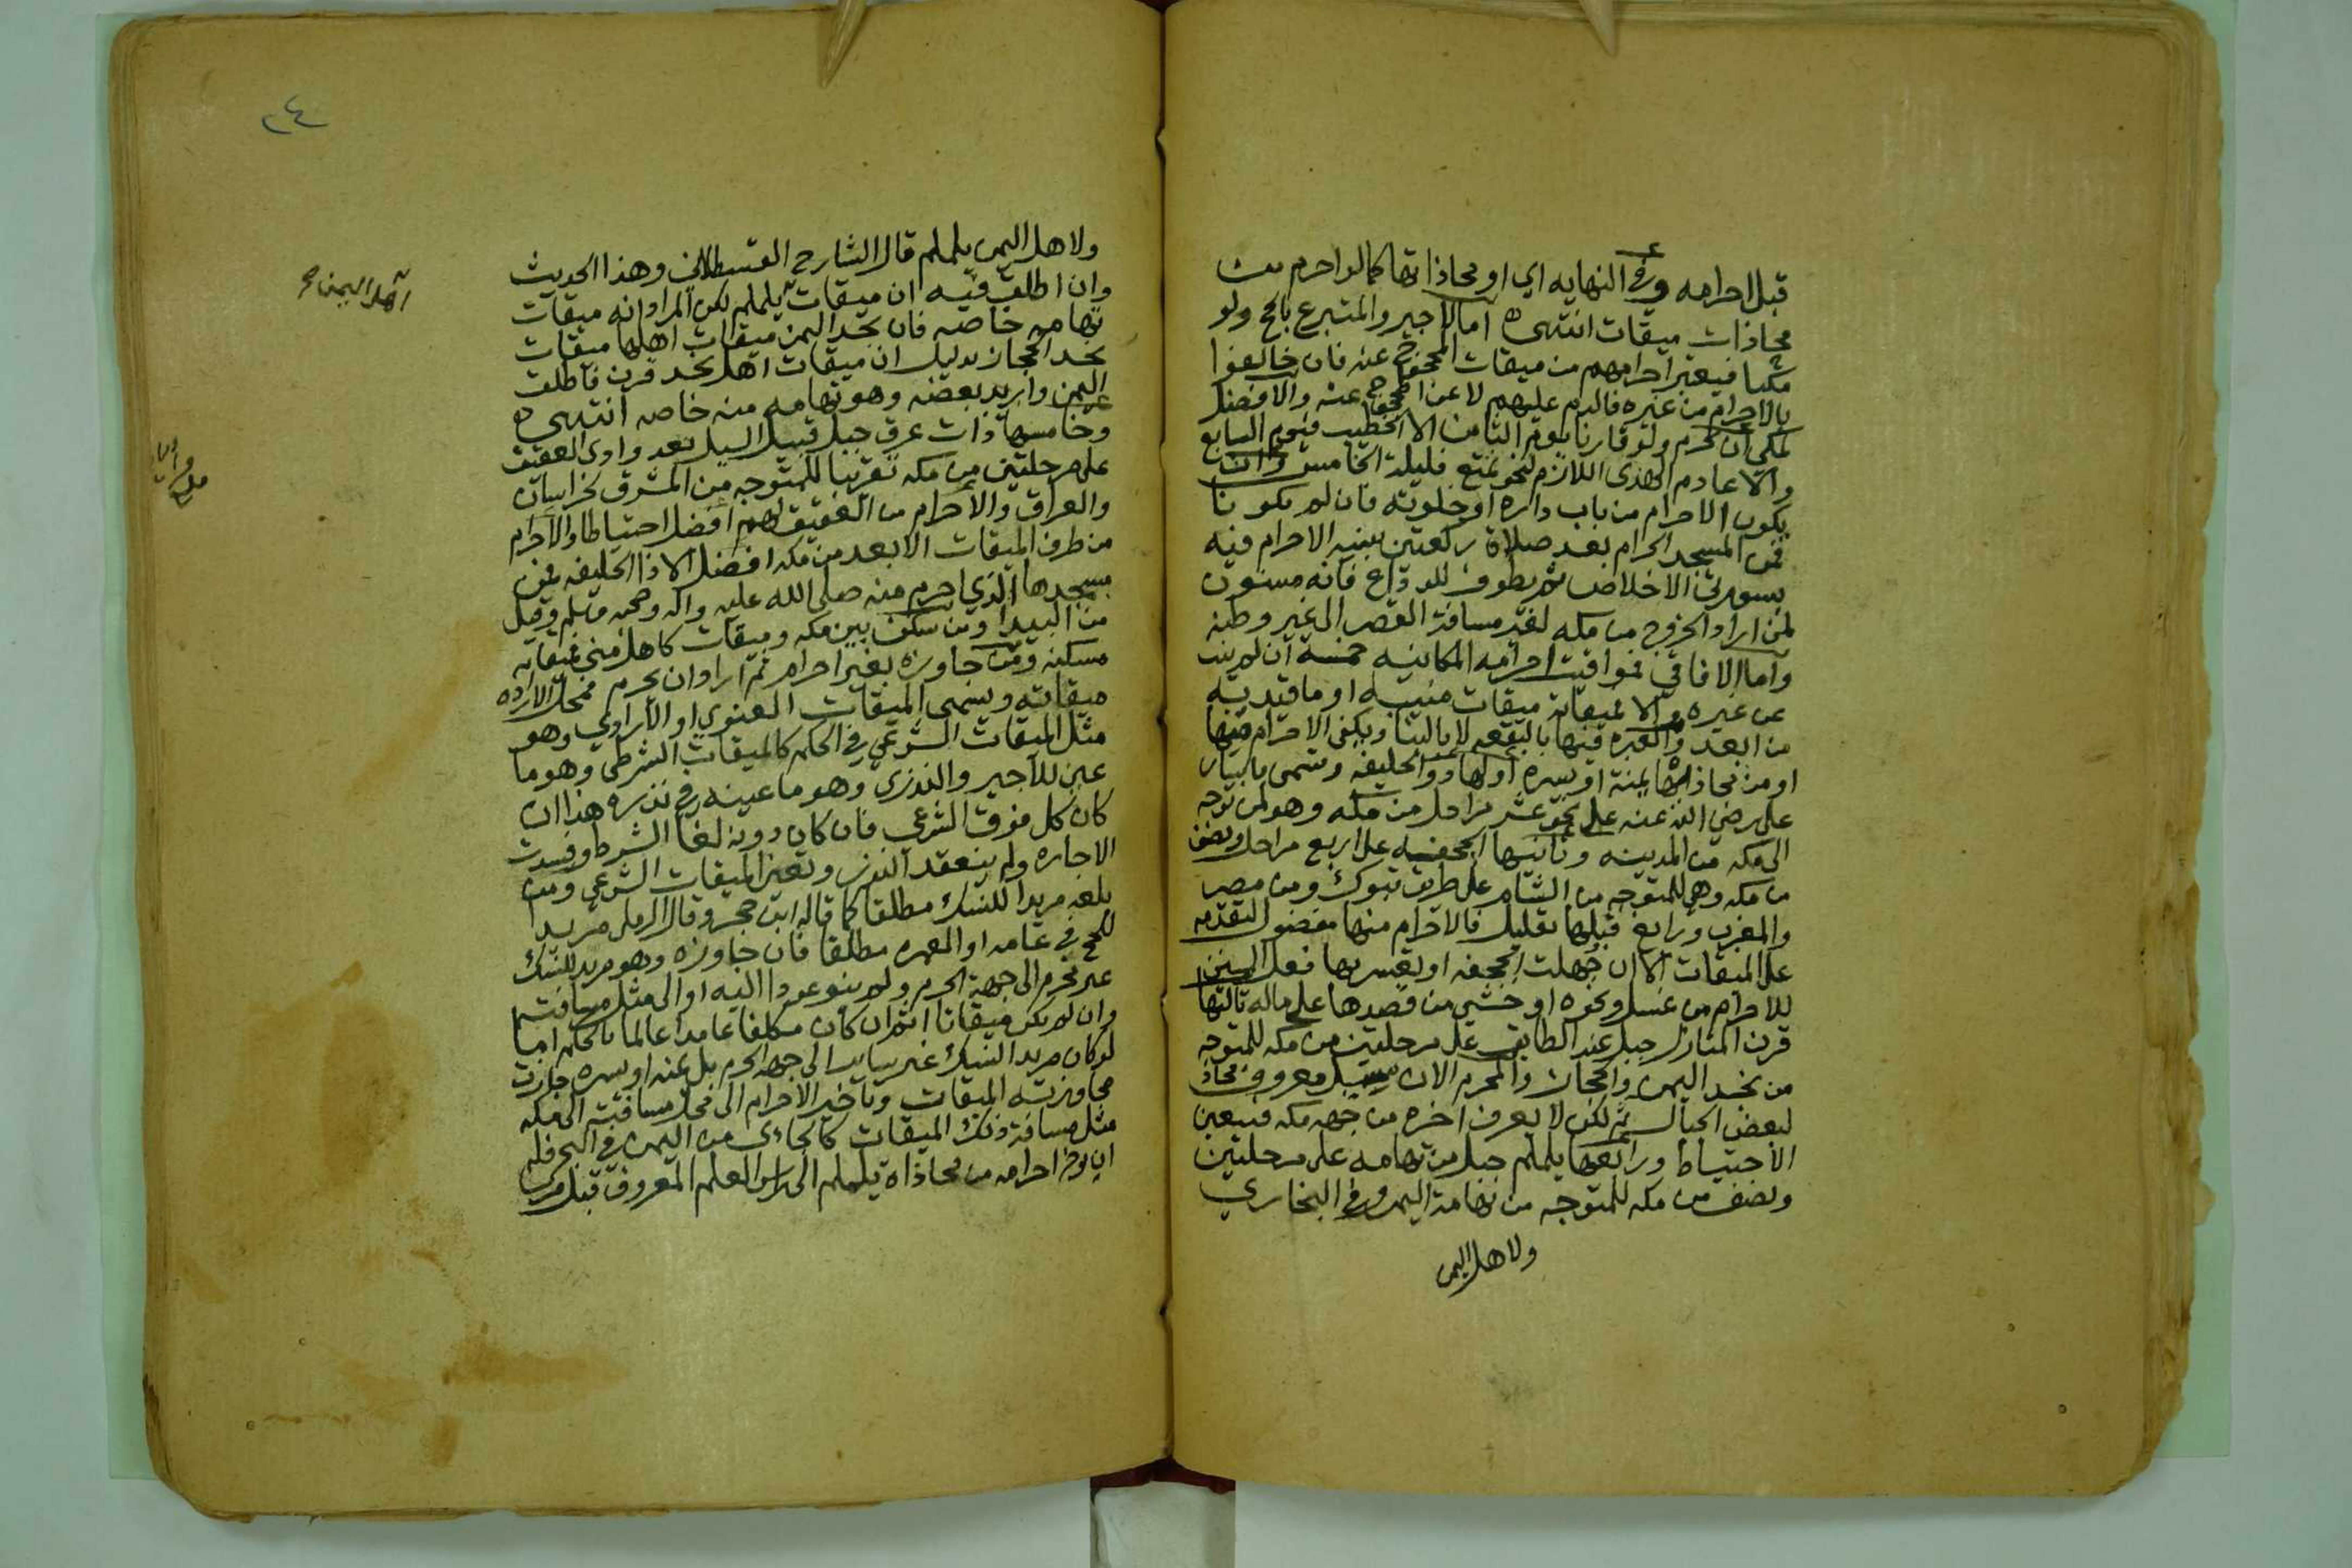 قبل احرامه وفي النهايه اي او محاذاتها كما لو احرم من
محاذات ميقات انتهى اما الاجير والمتبرع بالحج ولو
مكيا فيعتبر احرامهم من ميقات المحجوج عنه فان خالفوا
بالاحرام من غيره فالدم عليهم لا عن المحجوج عنه والافضل
لمكي ان يحرم ولو قارنا يوم الثامن الا الخطيب فيوم السابع
والا عادم الهدى اللازم لنحو تمتع فليلة الخامس وان
يكون الاحرام من باب داره او خلوته فان لم يكونا
فمن المسجد الحرام بعد صلاة ركعتين بنية الاحرام فيه
بسورتي الاخلاص ثم يطوف للوداع فانه مسنون
لمن اراد الخروج من مكه لقدر مسافة القصر الى غير وطنه
واما الافاقي فمواقيت احرامه المكانيه خمسة ان لم ينب
عن غيره والا فميقاته ميقات منيبه او ما قيد به
من ابعد والعبره فيها بالبقعه لا بالبنا ويكفي الاحرام فيها
او من محاذاتها يمنة او يسره اولها ذو الحليفه وتسمى بابيار
على رضي الله عنه على نحو عشر مراحل من مكه وهو لمن توجه
الى مكه من المدينه وثانيها الجحفه على اربع مراحل ونصف
من مكه وهي للمتوجه من الشام على طريق تبوك ومن مصر
والمغرب ورابغ قبلها بقليل فالاحرام منها مفضول لتقدمه
على الميقات الا ان جهلت الجحفه او تعسر بها فعل السنن
للاحرام من غسل ونحوه او خشي من قصدها على ماله ثالثها
قرن المنازل جبل عند الطايف على مرحلتين من مكه للمتوجه
من نجد اليمن والحجاز والمحرم الان سبيل معروف محاذ
لبعض الجبال ثم لكن لا يعرف اخره من جهه مكه فيتعين
الاحتياط ورابعها يلملم جبل من تهامه على مرحلتين
ونصف من مكه للمتوجه من تهامة اليمن وفي البخاري
ولاهل اليمن
٢٤
ولاهل اليمن يلملم قال الشارح القسطلاني وهذا الحديث
وان اطلق فيه ان ميقات يلملم لكن المراد انه ميقات
اهل اليمن
تهامه خاصه فان نجد اليمن ميقات اهلها ميقات
نجد الحجاز بدليل ان ميقات اهل نجد قرن فاطلق
اليمن واريد بعضه وهو تهامه منه خاصه انتهى
وخامسها ذات عرق جبل قبيل السيل بعد وادى العقيق
على مرحلتين من مكه تقريبا للمتوجه من المشرق كخراسان
والعراق والاحرام من العقيق لهم افضل احتياطا والاحرام
من طرف الميقات الابعد من مكه افضل الا ذا الحليفه فمن
مسجدها الذي احرم منه صلى الله عليه واله وصحبه وسلم وقيل
من البيدا ومن سكن بين مكه وميقات كاهل منى فميقاته
مسكنه ومن جاوزه بغير احرام ثم اراد ان يحرم فمحل الاراده
ميقاته ويسمى الميقات المعنوي او الارادي وهو
مثل الميقات الشرعي في الحكم كالميقات الشرطي وهو ما
عين للاجير والنذري وهو ما عينه في نذره هذا ان
كان كل فوق الشرعي فان كان دونه لغا الشرط وفسدت
الاجاره ولم ينعقد النذر وتعين الميقات الشرعي ومن
بلغه مريدا للنسك مطلقا كما قاله ابن حجر وقال الرملي مريدا
للحج في عامه او العمره مطلقا فان جاوزه وهو مريد للنسك
غير محرم الى جهة الحرم ولم ينو عودا اليه او الى مثل مسافته
وان لم يكن ميقاتا اثم ان كان مكلفا عامدا عالما بالحكم اما
لو كان مريدا النسك غير ساير الى جهه الحرم بل يمنه او يسره جازت
مجاوزته الميقات وتاخير الاحرام الى محل مسافته الى مكه
مثل مسافة ذلك الميقات كالجاءي من اليمن في البحر فله
ان يوخر احرامه من محاذاة يلملم الى راس العلم المعروف قبل مرسى